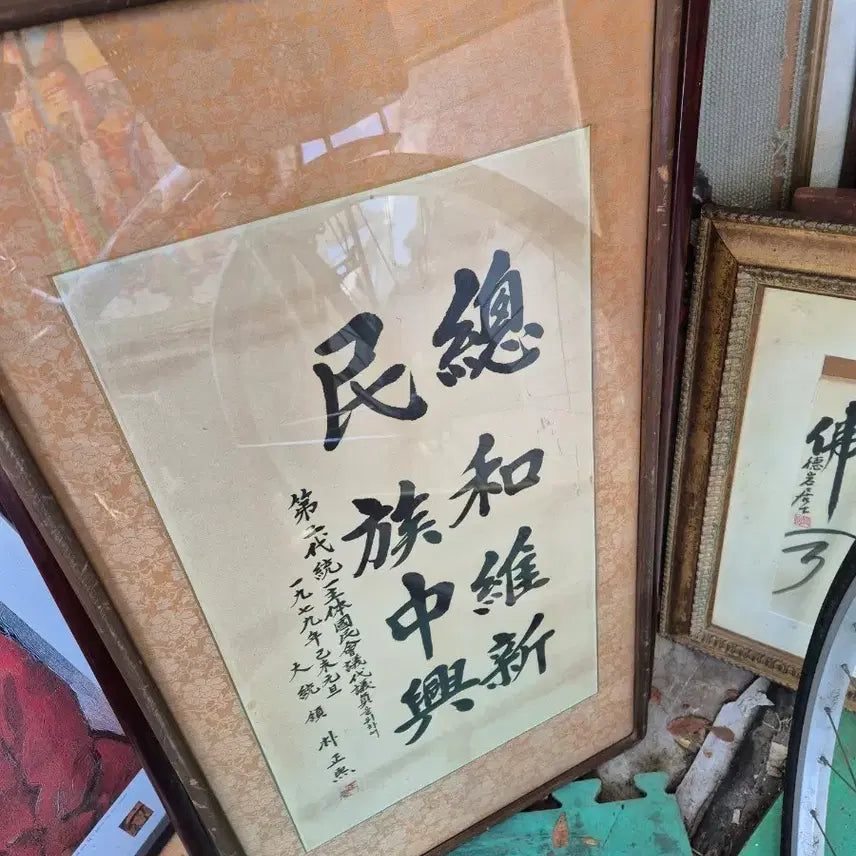 總和維新
民族中興
第二代統一主体國民會議代議員을위하여
一九七九年己未元旦
大統領 朴正熙
佛